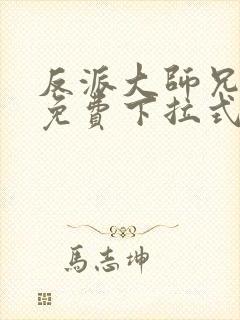 反派大師兄
免費下拉式
馬志坤